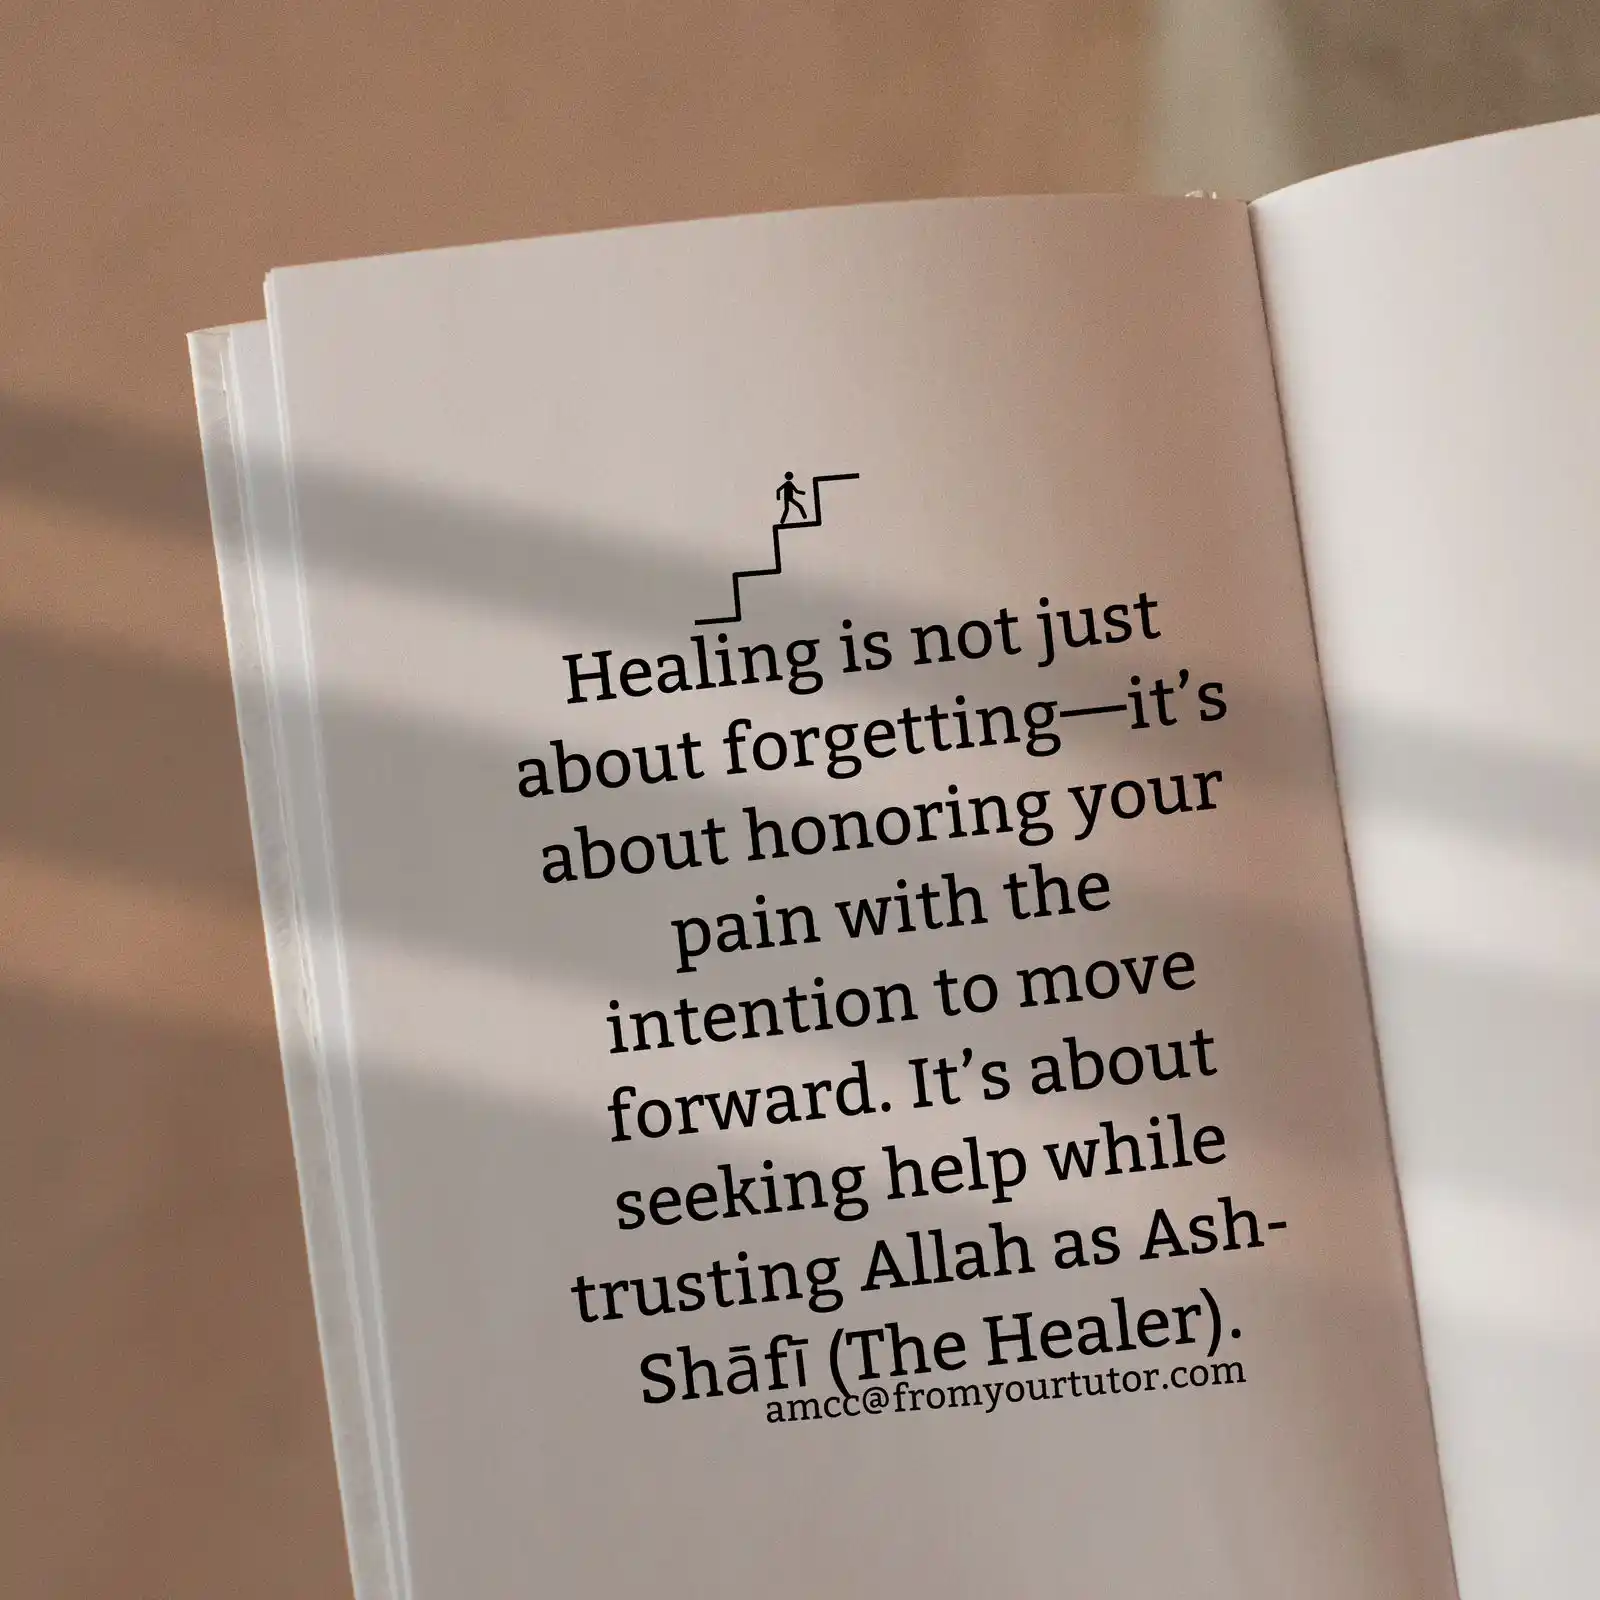 Healing is not just
about forgetting—it’s
about honoring your
pain with the
intention to move
forward. It’s about
seeking help while
trusting Allah as Ash-
Shāfī (The Healer).
amcc@fromyourtutor.com